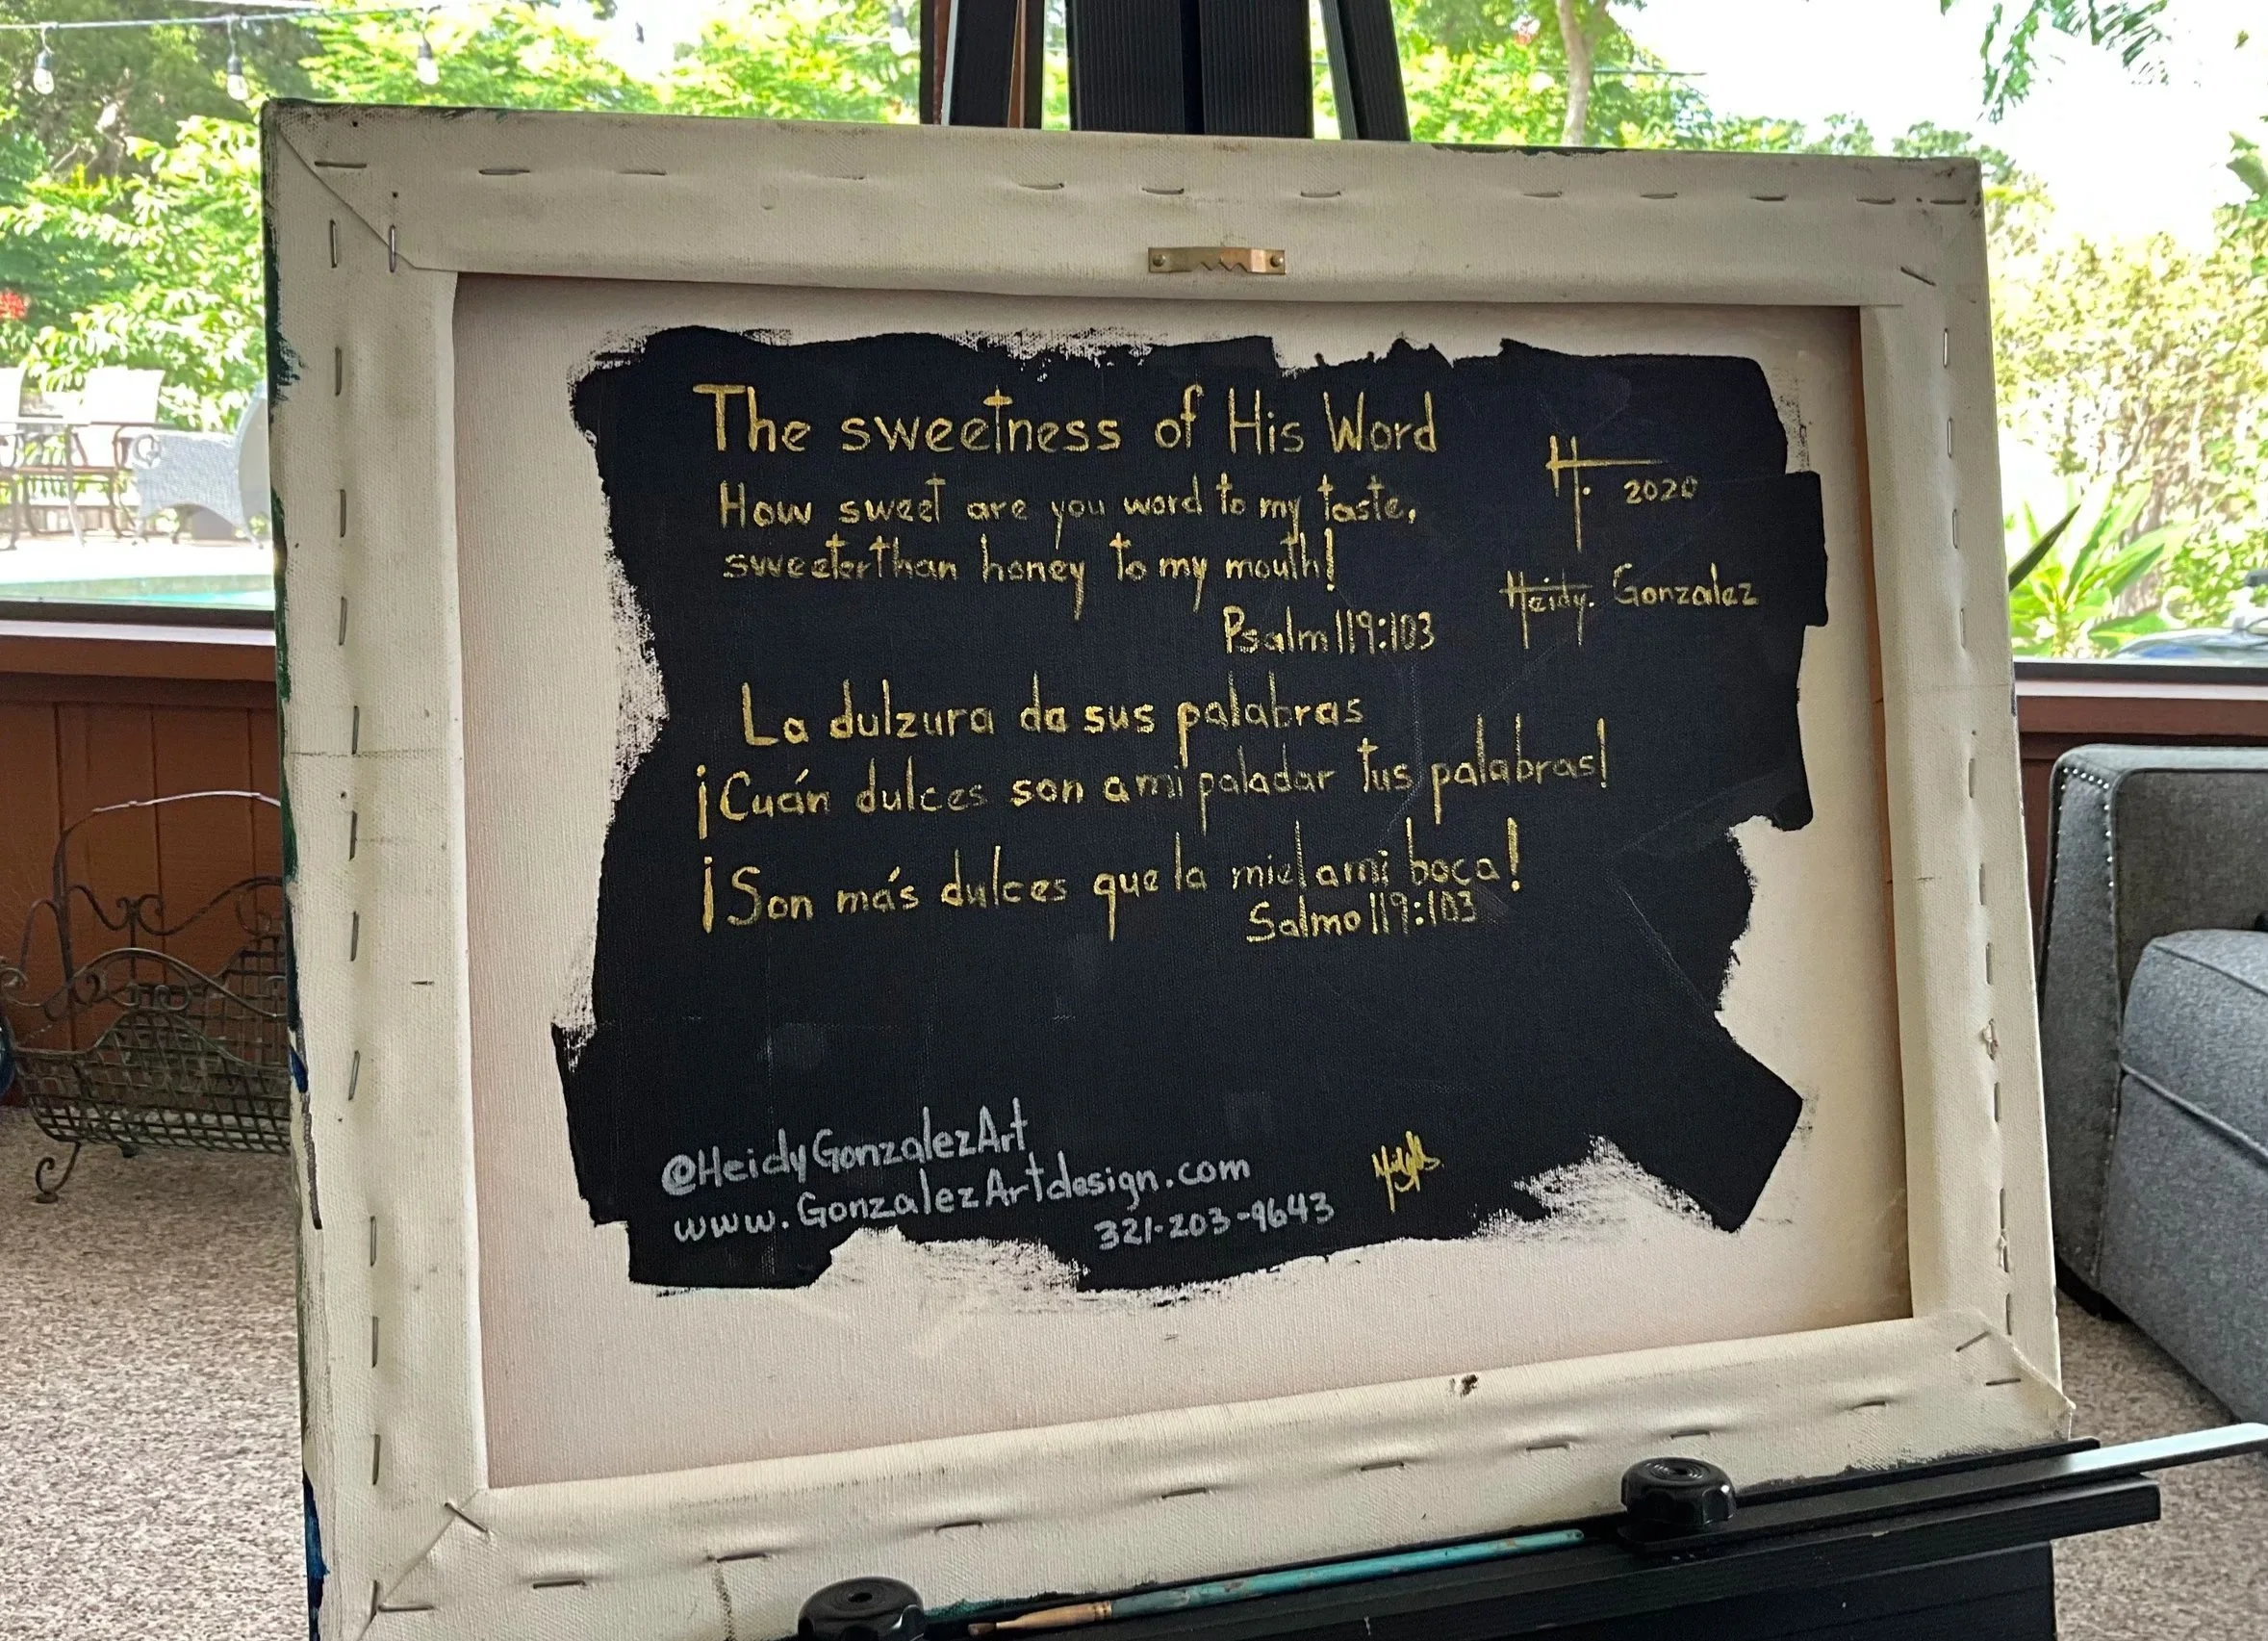 The sweetness of His Word
How sweet are you word to my taste,
sweeter than honey to my mouth!
Psalm 119:103
H. 2020
Heidy. Gonzalez
La dulzura da sus palabras
¡Cuán dulces son a mi paladar tus palabras!
¡Son más dulces que la miel a mi boca!
Salmo 119:103
@HeidyGonzalezArt
www.GonzalezArtdesign.com
321-203-9643